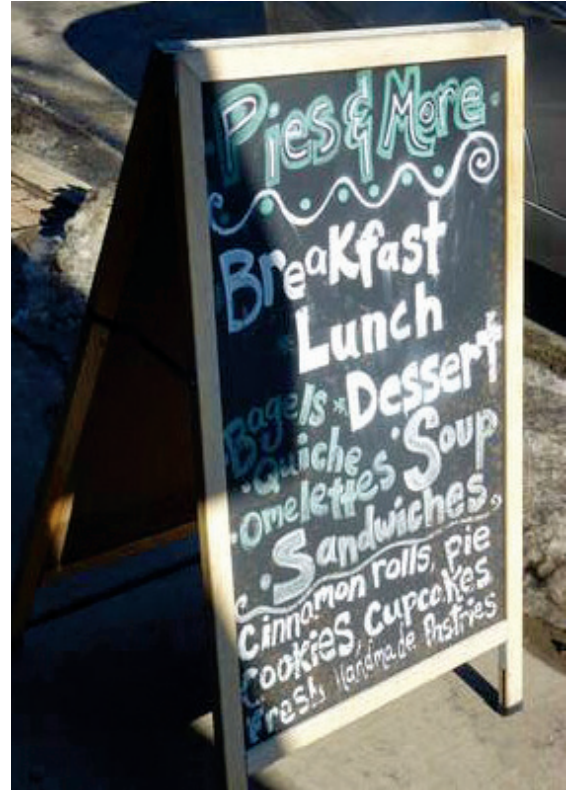 Pies & More
Breakfast
Lunch
Bagels * Dessert
• Quiche
• Omelettes • Soup
• Sandwiches
Cinnamon rolls, pie
Cookies, Cupcakes
Fresh Handmade Pastries